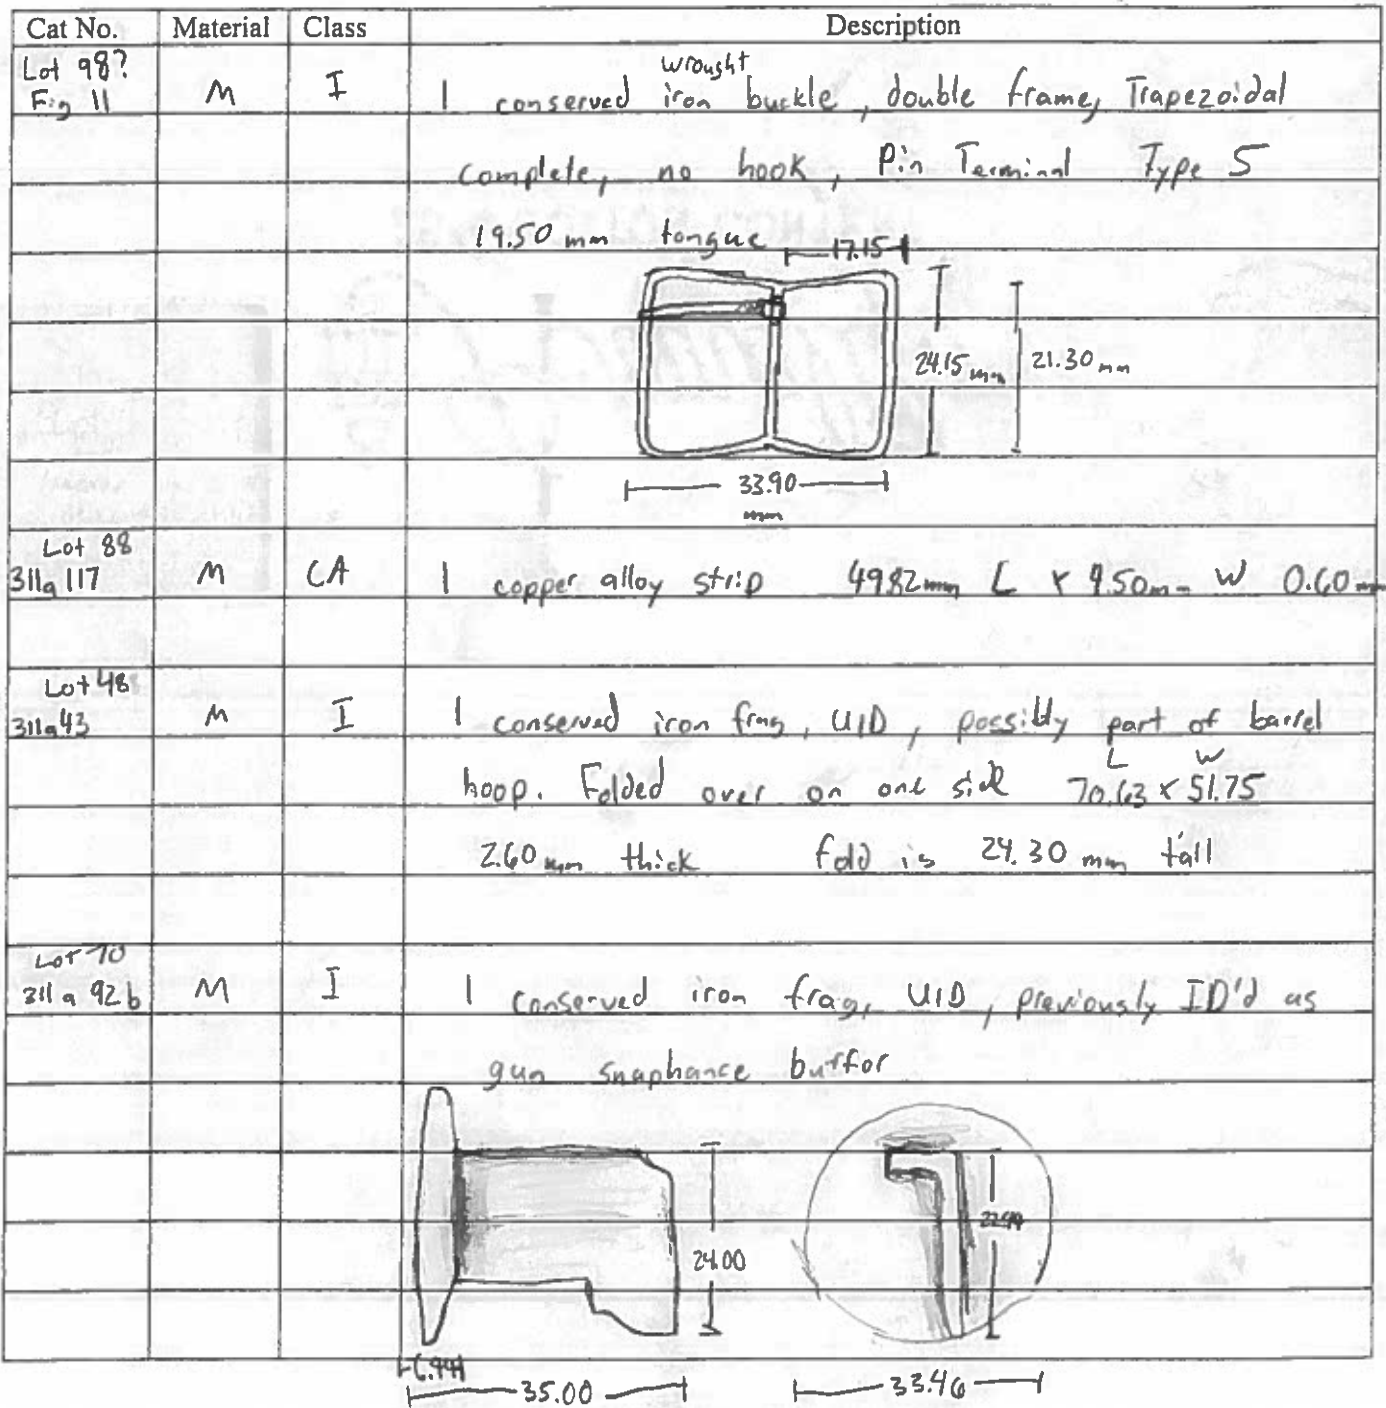 Cat No. Material Class Description
Lot 98?
Fig 11 M I 1 conserved wrought iron buckle, double frame, Trapezoidal
complete, no hook, Pin Terminal Type 5
19.50 mm tongue 17.15
24.15 mm 21.30 mm
33.90
mm
Lot 88
311a117 M CA 1 copper alloy strip 49.82mm L x 9.50mm W 0.60 mm
Lot 48
311a43 M I 1 conserved iron frag, UID, possibly part of barrel
L W
hoop. Folded over on one side 70.63 x 51.75
2.60 mm thick fold is 24.30 mm tall
Lot 70
311a 92b M I 1 conserved iron frag, UID, previously ID'd as
gun snaphance buffor
24.00
35.00 33.46